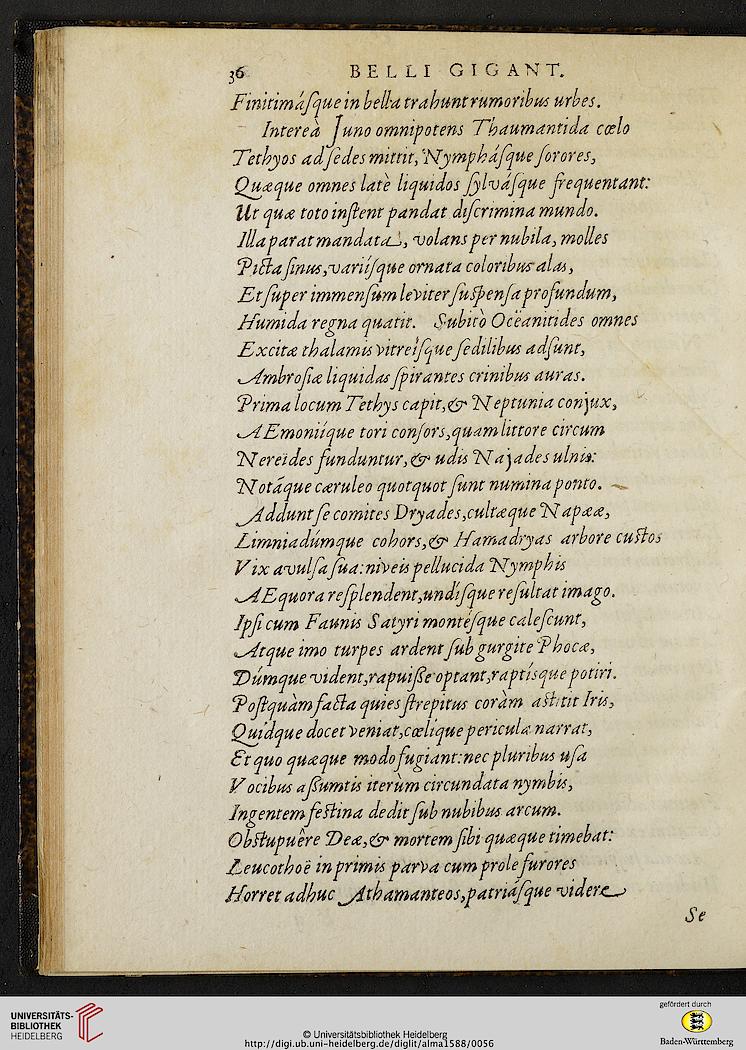 36 BELLI GIGANT.
Finitimáſque in bella trahunt rumoribus urbes.
Intereà Juno omnipotens Thaumantida cœlo
Tethyos ad ſedes mittit, Nympháſque ſorores,
Quæque omnes latè liquidos ſylváſque frequentant:
Ut quæ toto inſtent pandat diſcrimina mundo.
Illa parat mandata, volans per nubila, molles
Picta ſinus, variiſque ornata coloribus alas,
Et ſuper immenſum leviter ſuſpenſa profundum,
Humida regna quatit. Subitò Oceanitides omnes
Excitæ thalamis vitreíſque ſedilibus adſunt,
Ambroſiæ liquidas ſpirantes crinibus auras.
Prima locum Tethys capit, & Neptunia conjux,
AEmoniíque tori conſors, quam littore circum
Nereïdes funduntur, & udis Najades ulnis:
Notáque cæruleo quotquot ſunt numina ponto.
Addunt ſe comites Dryades, cultæque Napææ,
Limniadúmque cohors, & Hamadryas arbore cuſtos
Vix avulſa ſua: niveis pellucida Nymphis
AEquora reſplendent, undíſque reſultat imago.
Ipſi cum Faunis Satyri montéſque caleſcunt,
Atque imo turpes ardent ſub gurgite Phocæ,
Dúmque vident, rapuiſſe optant, raptíſque potiri.
Poſtquàm facta quies ſtrepitus coràm aſtitit Iris,
Quidque docet veniat, cœlíque pericula narrat,
Et quo quæque modo fugiant: nec pluribus uſa
Vocibus aſſumtis iterùm circundata nymbis,
Ingentem feſtina dedit ſub nubibus arcum.
Obſtupuêre Deæ, & mortem ſibi quæque timebat:
Leucothoë in primis parva cum prole furores
Horret adhuc Athamanteos, patriáſque videre
Se
UNIVERSITÄTS-
BIBLIOTHEK
HEIDELBERG
© Universitätsbibliothek Heidelberg
http://digi.ub.uni-heidelberg.de/diglit/alma1588/0056
gefördert durch
Baden-Württemberg